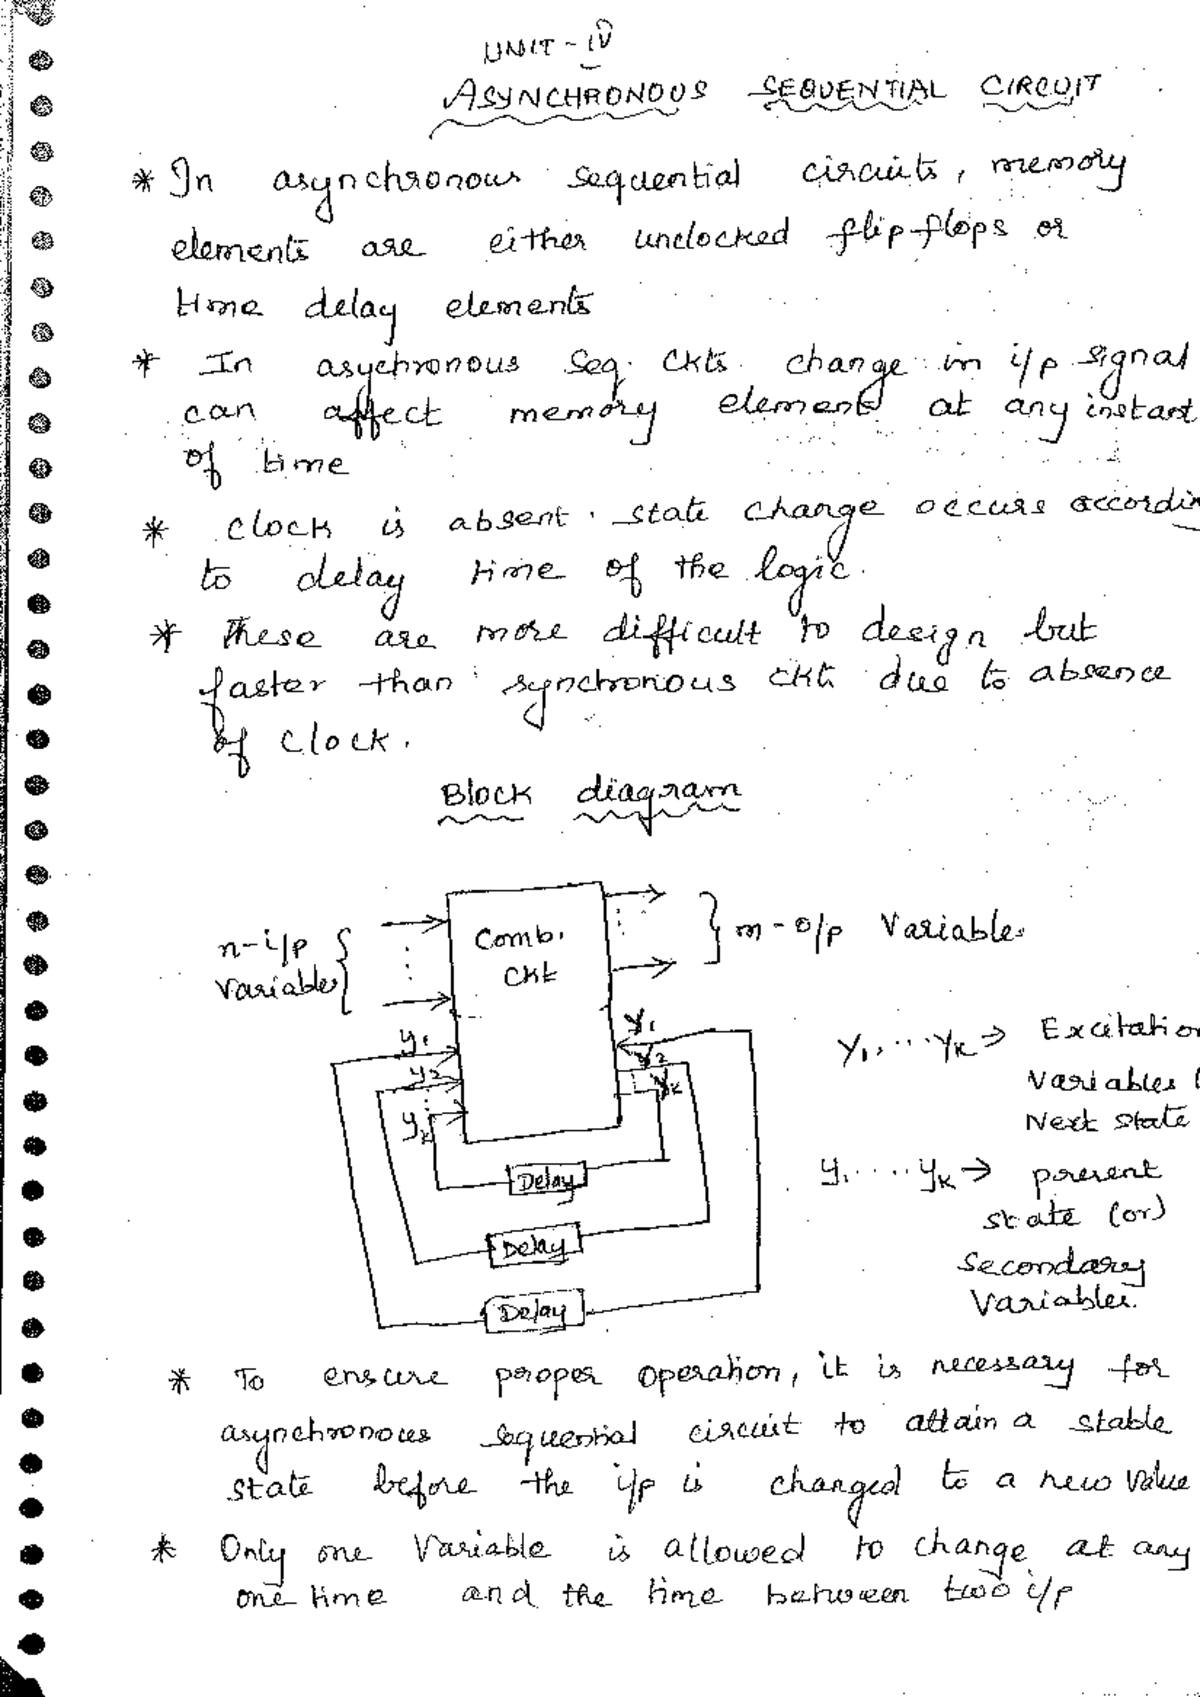 UNIT - IV
ASYNCHRONOUS SEQUENTIAL CIRCUIT
* In asynchronous sequential circuits, memory
elements are either unclocked flip-flops or
time delay elements
* In asychronous Seq. Ckts. change in i/p signal
can affect memory elements at any instant
of time
* Clock is absent. state change occurs accordin
to delay time of the logic.
* These are more difficult to design but
faster than synchronous ckt due to absence
of clock.
Block diagram
n-i/p
Variables
Comb.
Ckt
m - o/p Variables
y1
y2
yk
Y1
Y2
Yk
Delay
Delay
Delay
Y1, ... Yk → Excitation
Variables (
Next state
y1 .... yk → present
state (or)
Secondary
Variables.
* To ensure proper operation, it is necessary for
asynchronous sequential circuit to attain a stable
state before the i/p is changed to a new value
* Only one Variable is allowed to change at any
one time and the time between two i/p